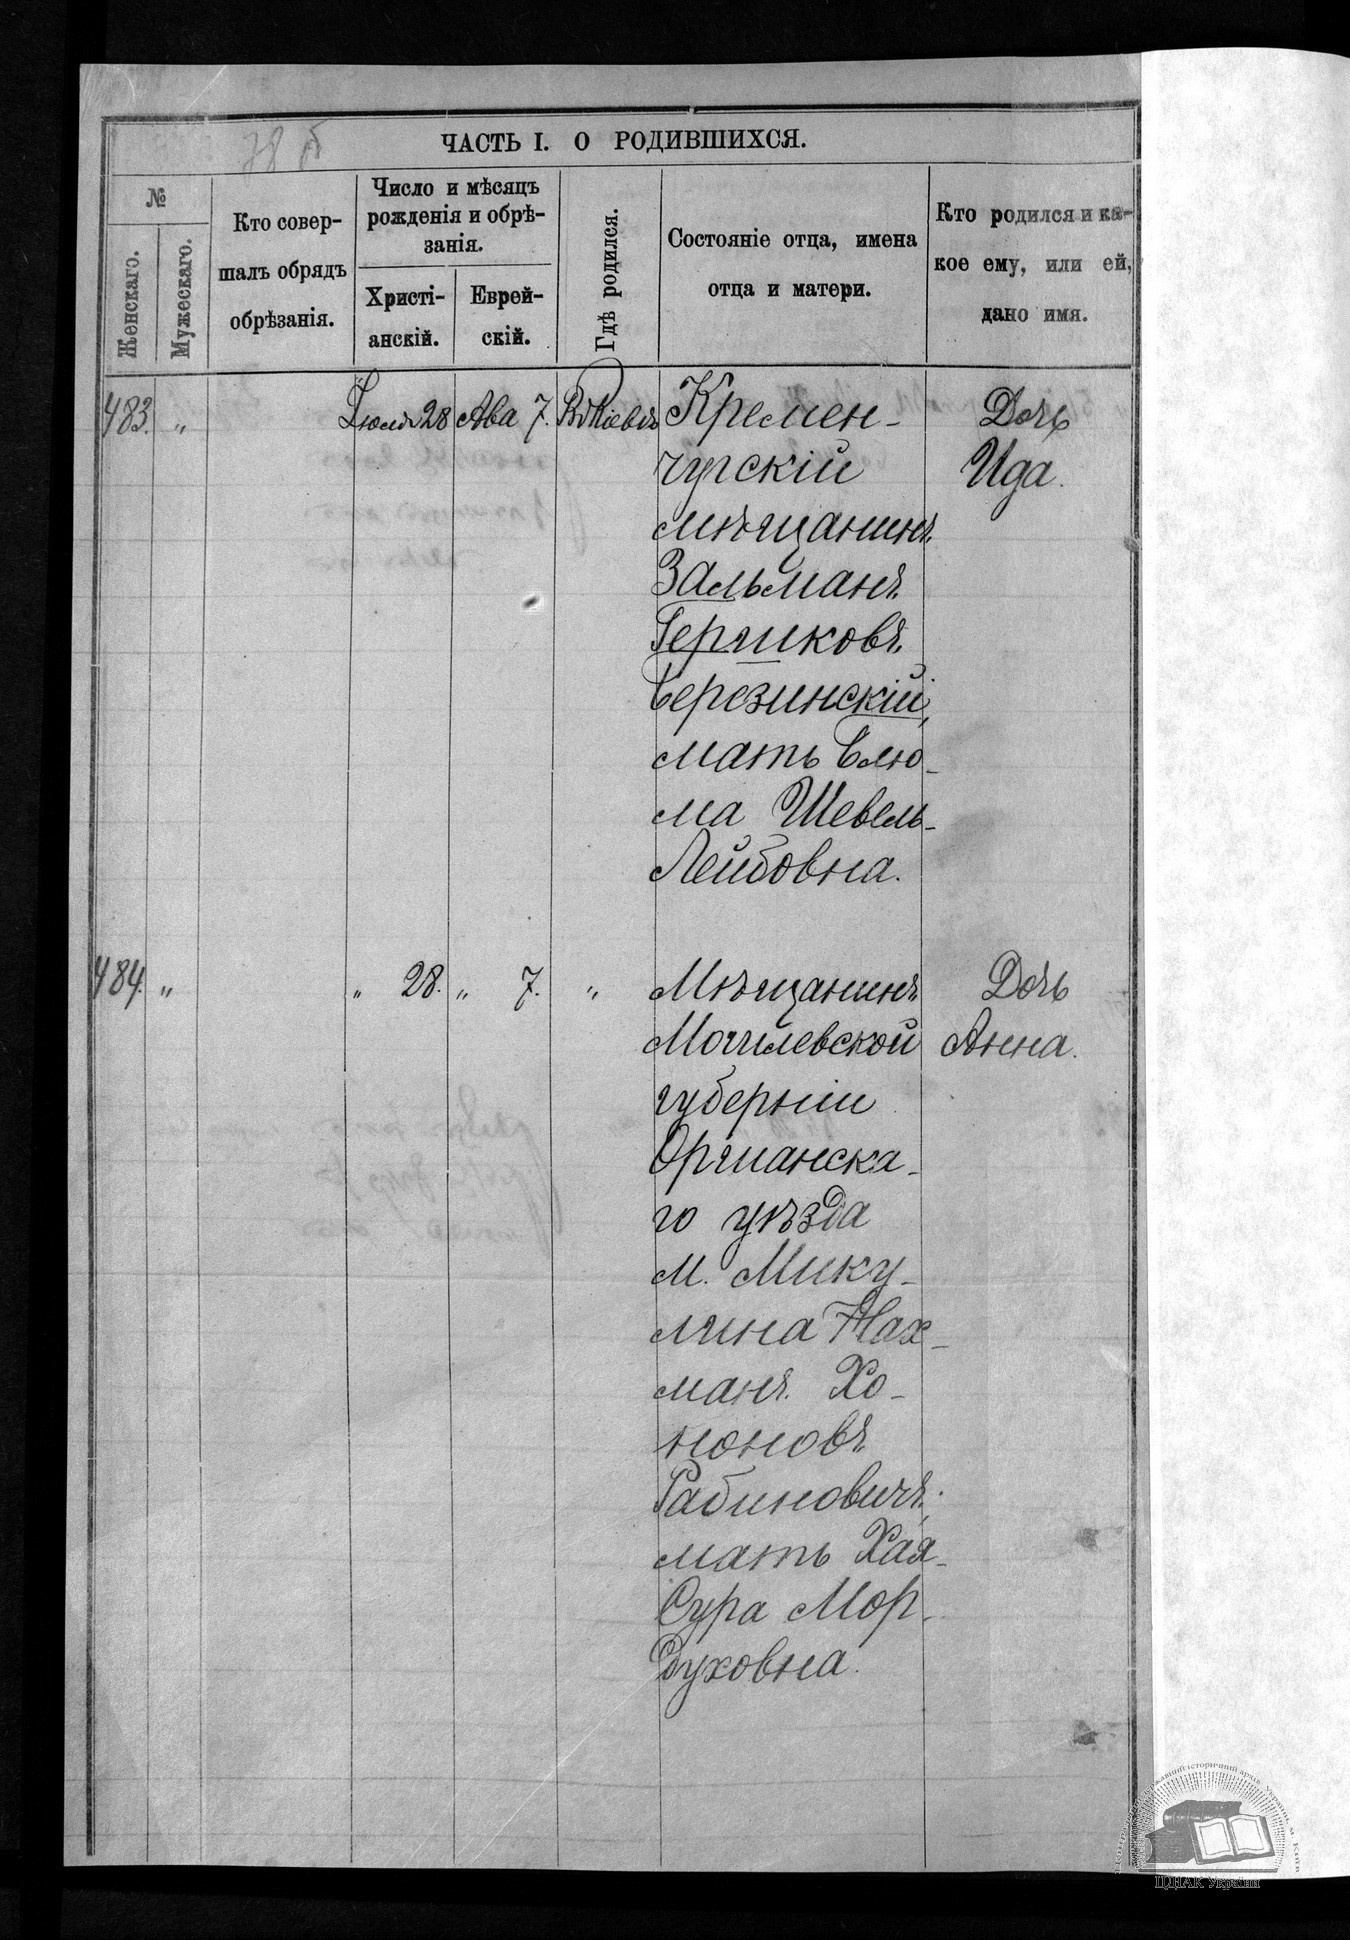 ЧАСТЬ I. О РОДИВШИХСЯ.
№
Женскаго.
Мужескаго.
Кто совер-
шалъ обрядъ
обрѣзанія.
Число и мѣсяцъ
рожденія и обрѣ-
занія.
Христі-
анскій.
Еврей-
скій.
Гдѣ родился.
Состояніе отца, имена
отца и матери.
Кто родился и ка-
кое ему, или ей,
дано имя.
483. „ Іюля 28 Ава 7. Въ Кіевѣ Кремен- Дочь
чугскій Ида.
мѣщанинъ
Зальманъ
Гершковъ
Березинскій,
мать Блю-
ма Шевель-
Лейбовна.
484. „ „ 28. „ 7. „ Мѣщанинъ Дочь
Могилевской Анна.
губерніи
Оршанска-
го уѣзда
м. Мику-
лина Нах-
манъ Хо-
ноновъ
Рабиновичъ,
мать Хая-
Сура Мор-
духовна.
ЦДІАК України